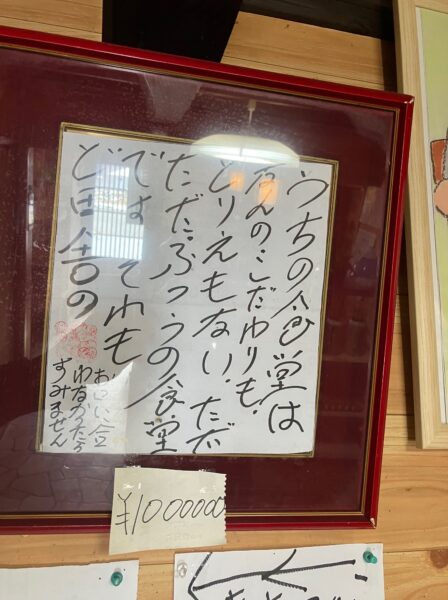 うちの食堂は
なんのこだわりも、
とりえもない、ただ
ただふつうの食堂
です それも
ど田舎の
お口に合
わなかったら
すみません
¥1000000